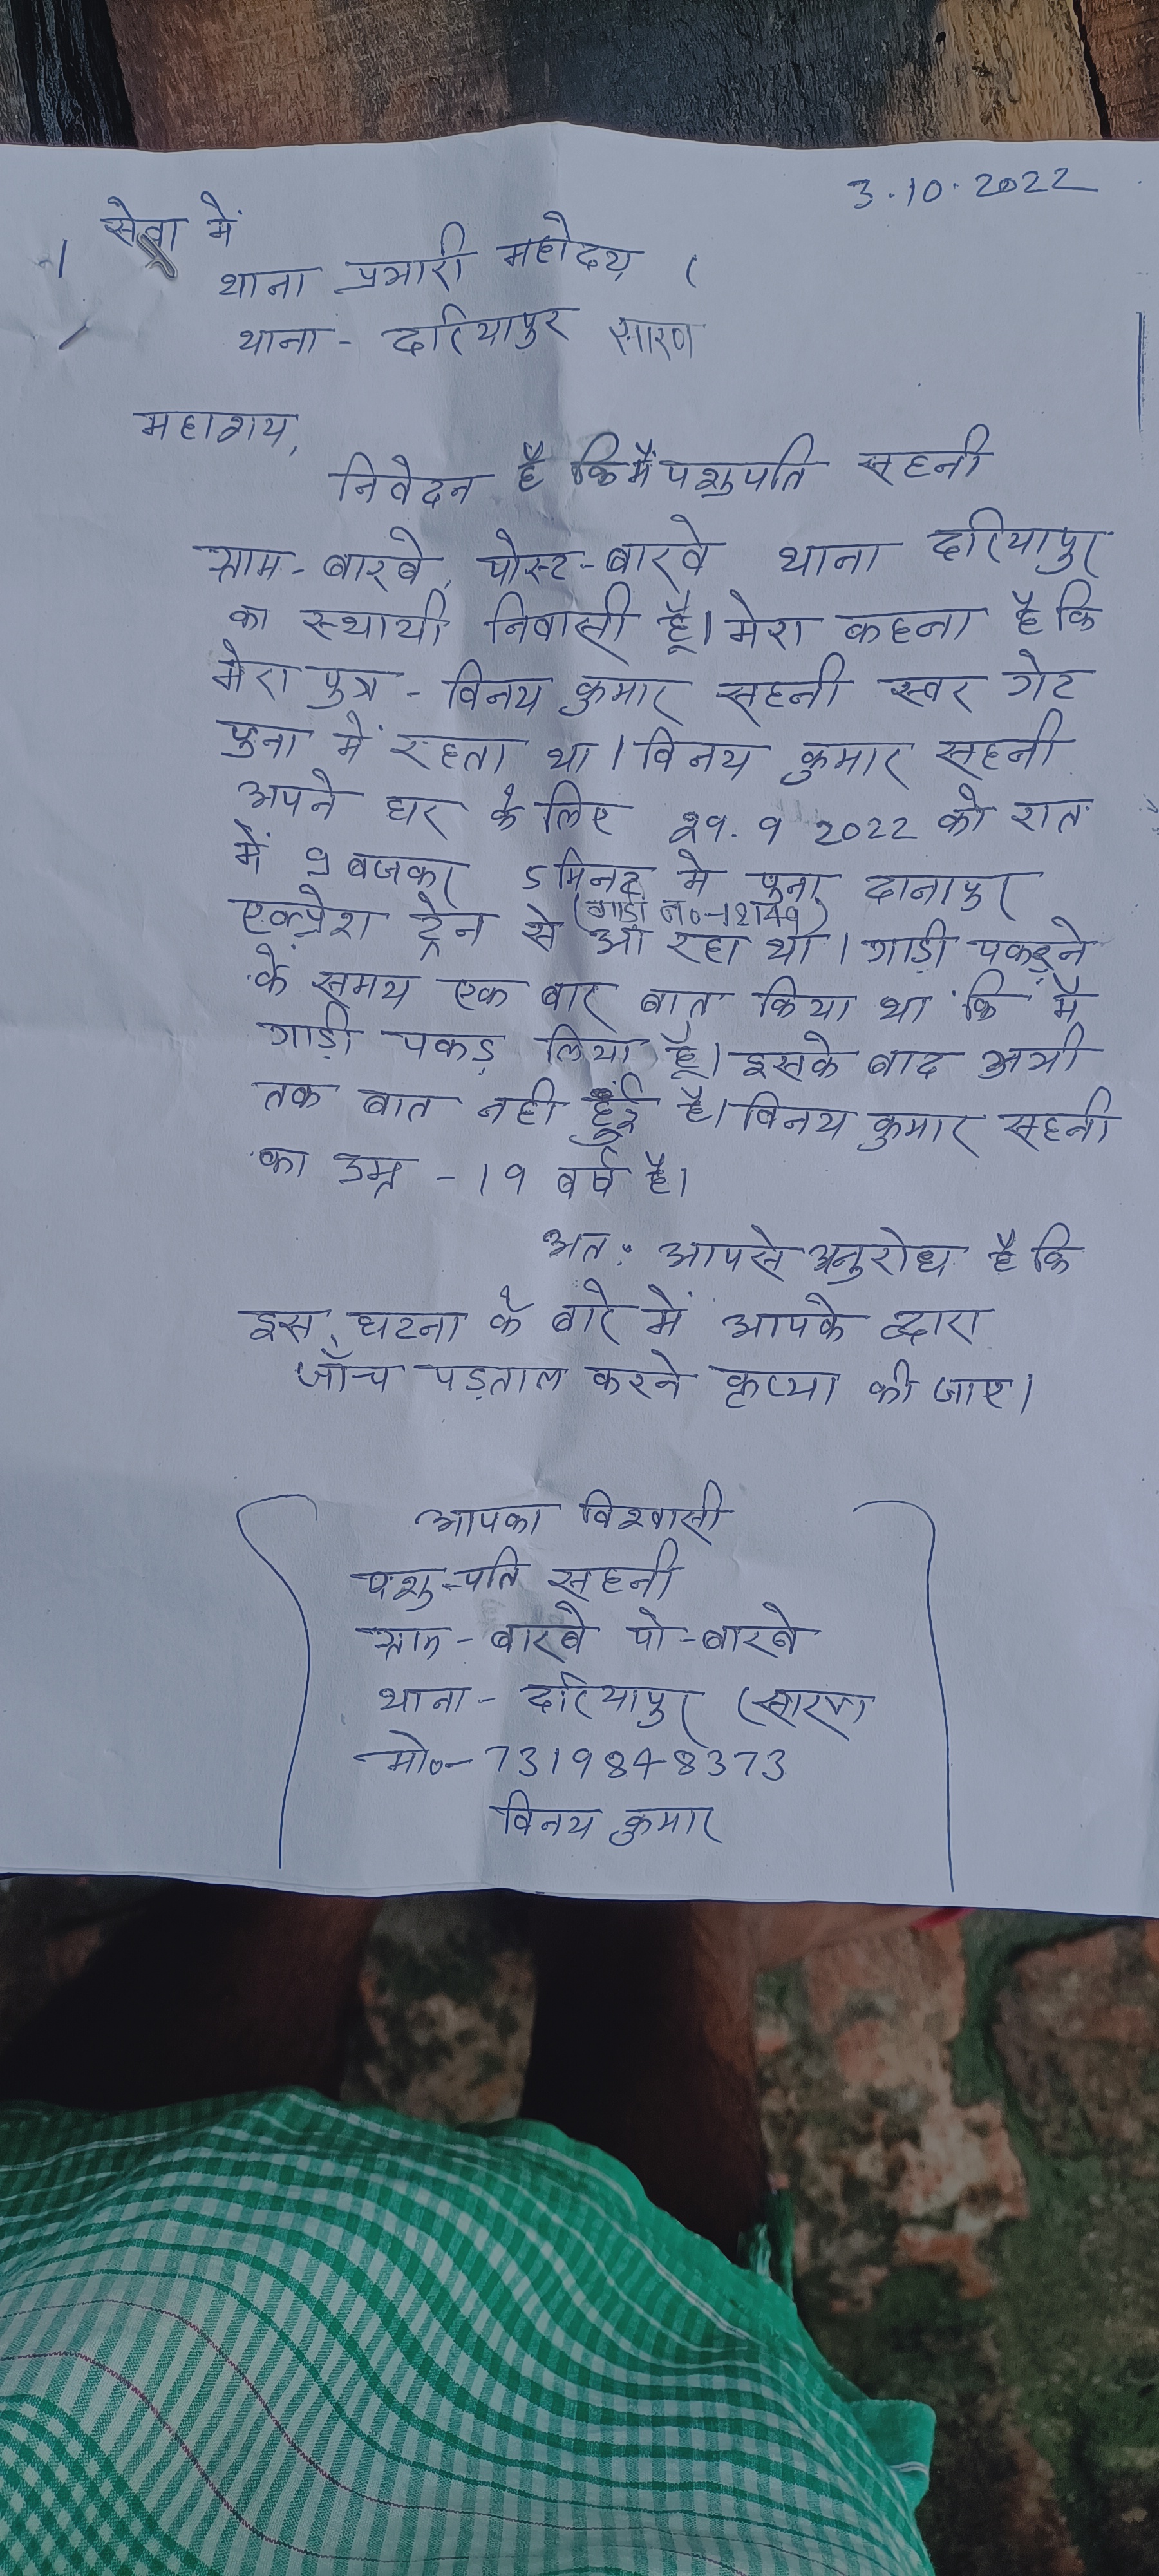 3.10.2022
सेवा में
थाना प्रभारी महोदय
थाना - दरियापुर सारण
महाशय,
निवेदन है कि मैं पशुपति सहनी
ग्राम - बारवे, पोस्ट - बारवे थाना दरियापुर
का स्थायी निवासी हूँ। मेरा कहना है कि
मेरा पुत्र - विनय कुमार सहनी स्वर गेट
पुना में रहता था। विनय कुमार सहनी
अपने घर के लिए 29.9 2022 को रात
में 9 बजकर 5 मिनट मे पुना दानापुर
(गाड़ी न०-12149)
एक्प्रेश ट्रेन से आ रहा था। गाड़ी पकड़ने
के समय एक बार बात किया था कि मैं
गाड़ी पकड़ लिया हूँ। इसके बाद अभी
तक बात नही हुई है। विनय कुमार सहनी
का उम्र - 19 वर्ष है।
अत: आपसे अनुरोध है कि
इस घटना के बारे में आपके द्वारा
जाँच पड़ताल करने कृप्या की जाए।
आपका विश्वासी
पशु-पति सहनी
ग्राम - बारवे पो - बारवे
थाना - दरियापुर (सारण)
मो०- 7319848373
विनय कुमार